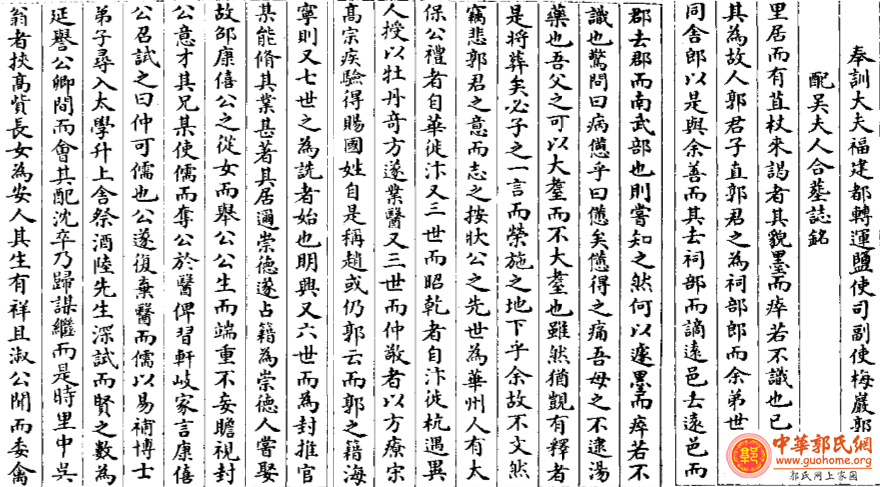 奉訓大夫福建都轉運鹽使司副使梅巖郭
配吳夫人合墓誌銘
里居而有苴杖來謁者其貌墨而瘁若不識也已
其為故人郭君子直郭君之為祠部郎而余弟世
同舍郎以是與余善而其去祠部而謫遠邑去遠邑而
郡去郡而南武部也則嘗知之然何以遽墨而瘁若不
識也驚問曰病憊乎曰憊矣憊得之痛吾母之不逮湯
藥也吾父之可以大耋而不大耋也雖然猶覬有釋者
是將葬矣必子之一言而榮施之地下乎余故不文然
竊悲郭君之意而志之按狀公之先世為華州人有太
保公禮者自華徙汴又三世而昭乾者自汴徙杭遇異
人授以牡丹奇方遂業醫又三世而仲敬者以方療宋
高宗疾驗得賜國姓自是稱趙或仍郭云而郭之籍海
寧則又七世之為詵者始也明興又六世而為封推官
某能脩其業甚著其居邇崇德遂占籍為崇德人嘗娶
故邵康僖公之從女而舉公公生而端重不妄瞻視封
公意才其兄某使儒而奪公於醫俾習軒岐家言康僖
公召試之曰仲可儒也公遂復棄醫而儒以易補博士
弟子尋入太學升上舍祭酒陸先生深試而賢之數為
延譽公卿間而會其配沈卒乃歸謀繼而是時里中吳
翁者挾高貲長女為安人其生有祥且淑公聞而委禽
中華郭氏網
www.guohome.org
郭氏网上家园